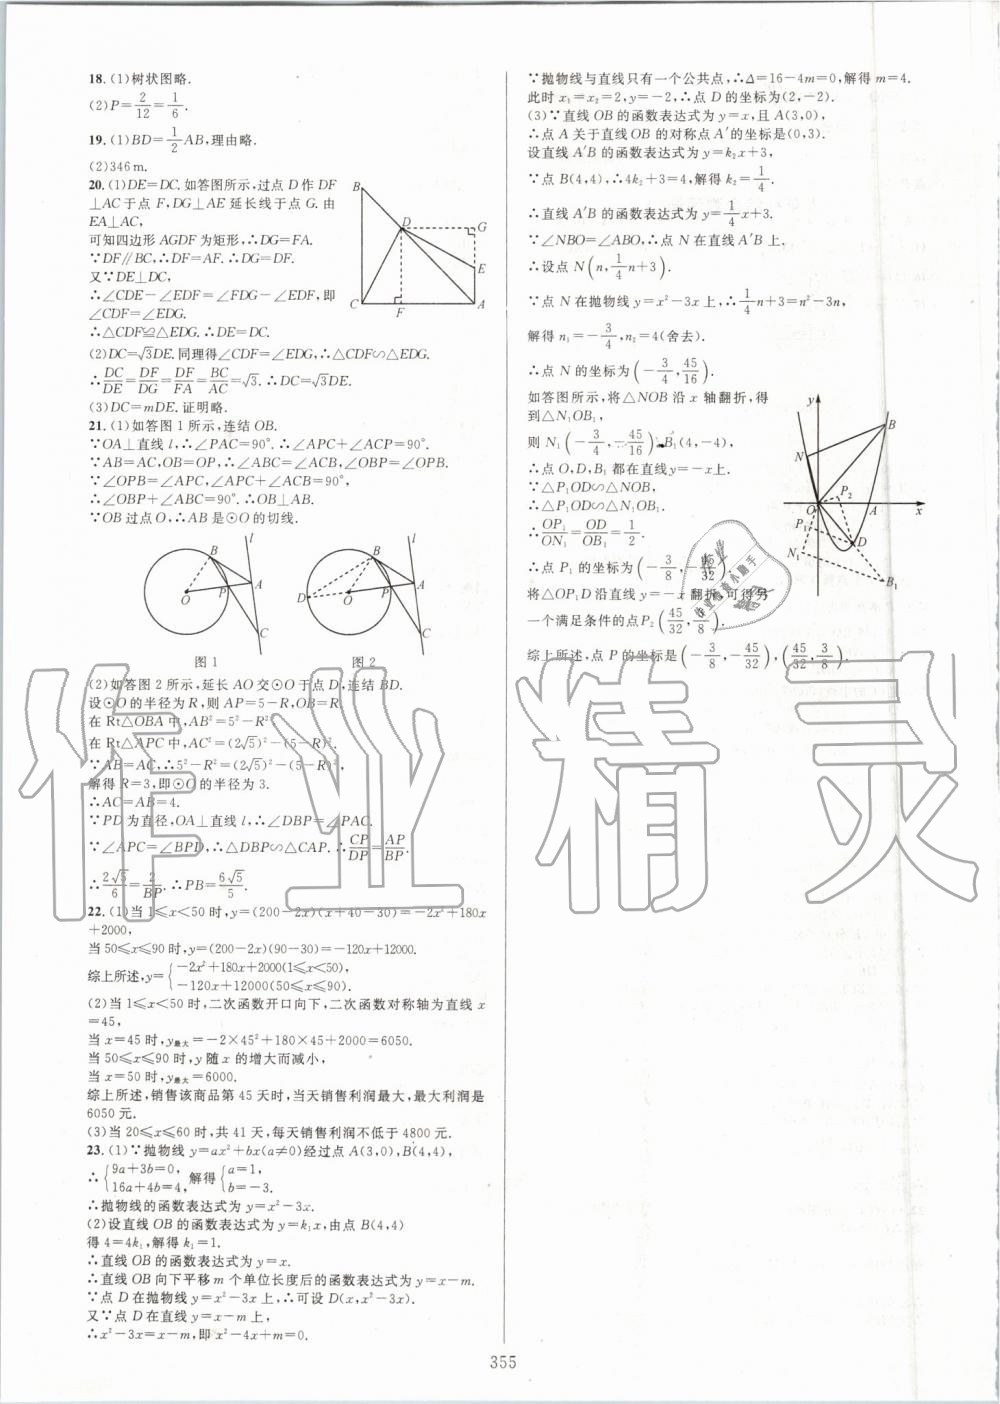 18.(1)树状图略.
(2)P=2/12=1/6.
19.(1)BD=1/2AB,理由略.
(2)346m.
20.(1)DE=DC.如答图所示,过点D作DF
⊥AC于点F,DG⊥AE延长线于点G.由
EA⊥AC,
可知四边形AGDF为矩形,∴DG=FA.
∵DF∥BC,∴DF=AF.∴DG=DF.
又∵DE⊥DC,
∴∠CDE-∠EDF=∠FDG-∠EDF,即
∠CDF=∠EDG.
∴△CDF≌△EDG.∴DE=DC.
(2)DC=√3DE.同理得∠CDF=∠EDG,∴△CDF∽△EDG.
∴DC/DE=DF/DG=DF/FA=BC/AC=√3.∴DC=√3DE.
(3)DC=mDE.证明略.
B
D
G
E
C
F
A
21.(1)如答图1所示,连结OB.
∵OA⊥直线l,∴∠PAC=90°.∴∠APC+∠ACP=90°.
∵AB=AC,OB=OP,∴∠ABC=∠ACB,∠OBP=∠OPB.
∵∠OPB=∠APC,∠APC+∠ACB=90°.
∴∠OBP+∠ABC=90°.∴OB⊥AB.
∵OB过点O,∴AB是⊙O的切线.
l
B
A
O
P
C
l
B
A
D
O
P
C
图1
图2
(2)如答图2所示,延长AO交⊙O于点D,连结BD.
设⊙O的半径为R,则AP=5-R,OB=R.
在Rt△OBA中,AB²=5²-R²
在Rt△APC中,AC²=(2√5)²-(5-R)².
∵AB=AC,∴5²-R²=(2√5)²-(5-R)²,
解得R=3,即⊙O的半径为3.
∴AC=AB=4.
∵PD为直径,OA⊥直线l,∴∠DBP=∠PAC.
∵∠APC=∠BPD,∴△DBP∽△CAP.∴CP/DP=AP/BP.
∴2√5/6=2/BP.∴PB=6√5/5.
22.(1)当1≤x<50时,y=(200-2x)(x+40-30)=-2x²+180x
+2000,
当50≤x≤90时,y=(200-2x)(90-30)=-120x+12000.
综上所述,y={-2x²+180x+2000(1≤x<50),
-120x+12000(50≤x≤90).
(2)当1≤x<50时,二次函数开口向下,二次函数对称轴为直线x
=45,
当x=45时,y最大=-2×45²+180×45+2000=6050.
当50≤x≤90时,y随x的增大而减小,
当x=50时,y最大=6000.
综上所述,销售该商品第45天时,当天销售利润最大,最大利润是
6050元.
(3)当20≤x≤60时,共41天,每天销售利润不低于4800元.
23.(1)∵抛物线y=ax²+bx(a≠0)经过点A(3,0),B(4,4),
∴{9a+3b=0, 16a+4b=4,解得{a=1, b=-3.
∴抛物线的函数表达式为y=x²-3x.
(2)设直线OB的函数表达式为y=k₁x,由点B(4,4)
得4=4k₁,解得k₁=1.
∴直线OB的函数表达式为y=x.
∴直线OB向下平移m个单位长度后的函数表达式为y=x-m.
∵点D在抛物线y=x²-3x上,∴可设D(x,x²-3x).
又∵点D在直线y=x-m上,
∴x²-3x=x-m,即x²-4x+m=0.
∵抛物线与直线只有一个公共点,∴Δ=16-4m=0,解得m=4.
此时x₁=x₂=2,y=-2,∴点D的坐标为(2,-2).
(3)∵直线OB的函数表达式为y=x,且A(3,0),
∴点A关于直线OB的对称点A′的坐标是(0,3).
设直线A′B的函数表达式为y=k₂x+3,
∵点B(4,4),∴4k₂+3=4,解得k₂=1/4.
∴直线A′B的函数表达式为y=1/4x+3.
∵∠NBO=∠ABO,∴点N在直线A′B上,
∴设点N(n,1/4n+3).
∵点N在抛物线y=x²-3x上,∴1/4n+3=n²-3n,
解得n₁=-3/4,n₂=4(舍去).
∴点N的坐标为(-3/4,45/16).
如答图所示,将△NOB沿x轴翻折,得
到△N₁OB₁,
则N₁(-3/4,-45/16),B₁(4,-4),
∴点O,D,B₁都在直线y=-x上.
∵△P₁OD∽△NOB,
∴△P₁OD∽△N₁OB₁.
∴OP₁/ON₁=OD/OB₁=1/2.
∴点P₁的坐标为(-3/8,-45/32).
将△OP₁D沿直线y=-x翻折,可得另
一个满足条件的点P₂(45/32,3/8).
综上所述,点P的坐标是(-3/8,-45/32),(45/32,3/8).
y
B
N
P₂
O
A
x
P₁
D
N₁
B₁
作业精灵
355